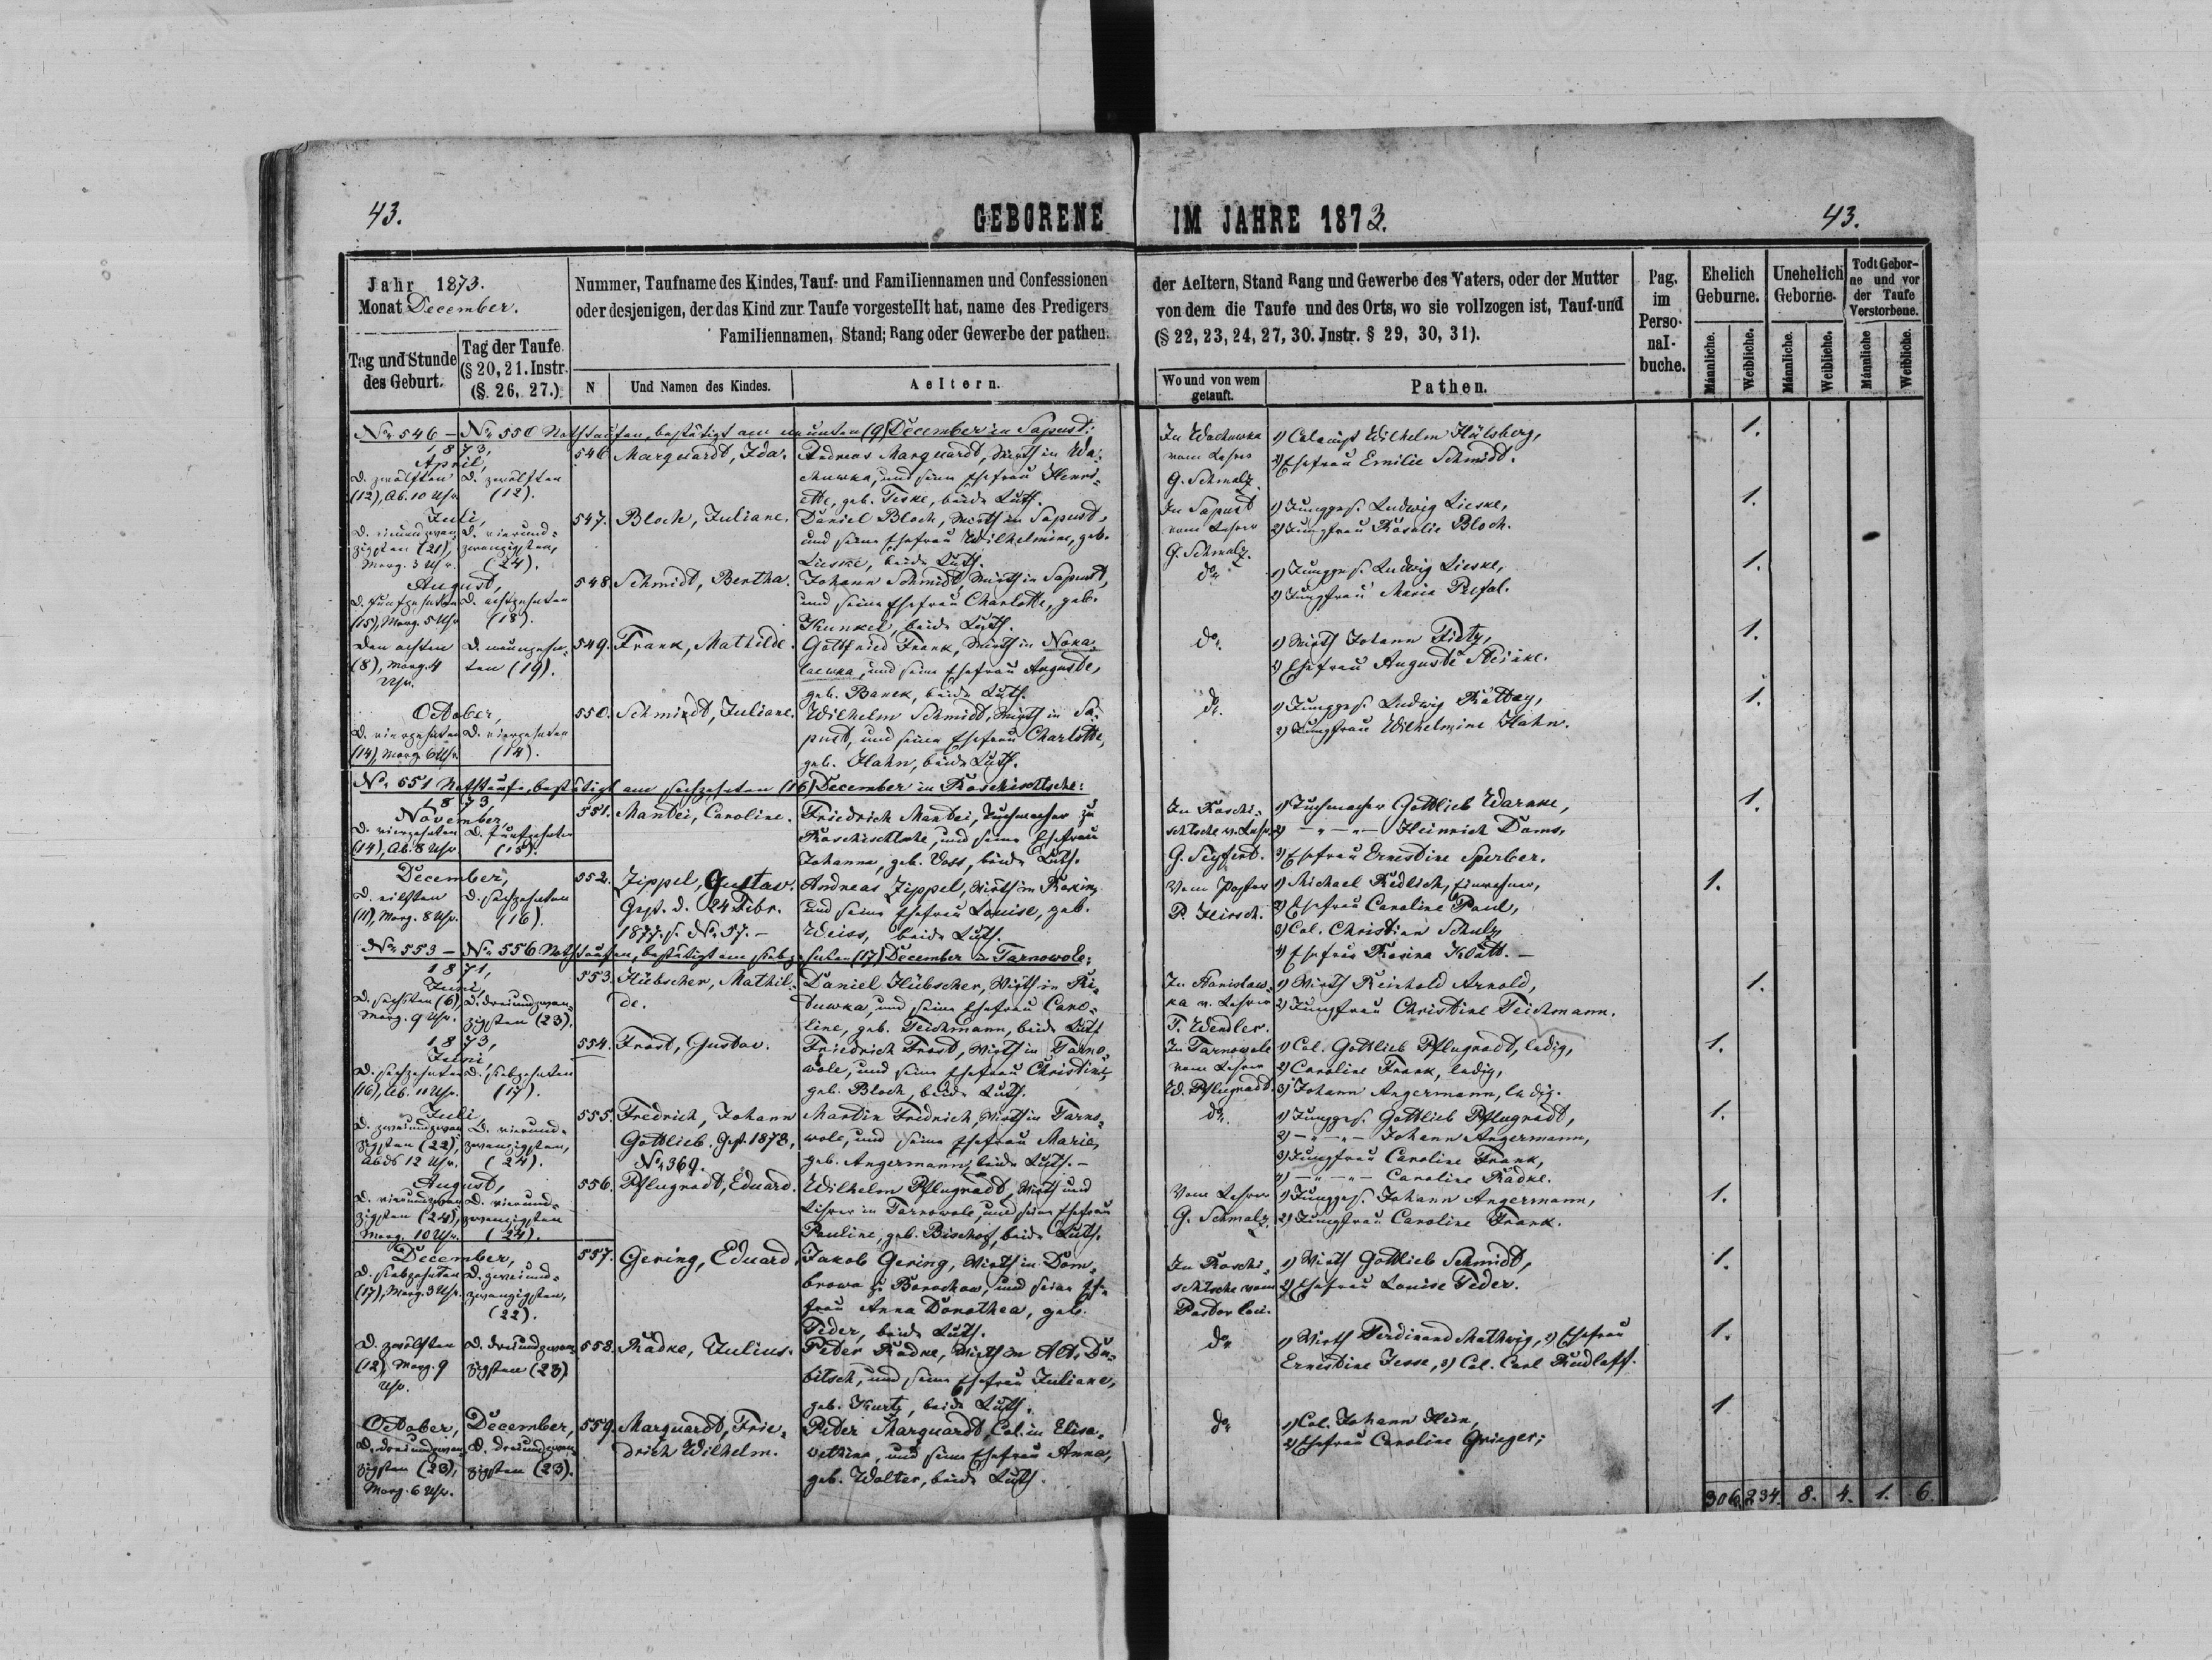 43.
GEBORENE
IM JAHRE 1873.
43.
Jahr 1873.
Monat December.
Tag und Stunde
des Geburt.
Tag der Taufe.
(§ 20, 21. Instr.
(§. 26, 27.)
Nummer, Taufname des Kindes, Tauf- und Familiennamen und Confessionen
oder desjenigen, der das Kind zur Taufe vorgestellt hat, name des Predigers
Familiennamen, Stand; Rang oder Gewerbe der pathen.
N
Und Namen des Kindes.
Aeltern.
der Aeltern, Stand Rang und Gewerbe des Vaters, oder der Mutter
von dem die Taufe und des Orts, wo sie vollzogen ist, Tauf-und
(§ 22, 23, 24, 27, 30. Jnstr. § 29, 30, 31).
Wo und von wem
getauft.
Pathen.
Pag.
im
Perso-
nal-
buche.
Ehelich
Geburne.
Unehelich
Geborne.
Todt Gebor-
ne und vor
der Taufe
Verstorbene.
Männliche.
Weibliche.
Männliche.
Weibliche.
Männliche
Weibliche.
No 546 – No 550 Nothtaufen, bestätigt am neunten (9) December in Sapust:
1873,
April,
D. zwölften
(12), Ab. 10 Uhr
D. zwölften
(12).
546. Marquardt, Ida.
Andreas Marquardt, Wirth in Wa-
chuwka, und seine Ehefrau Henri-
ette, geb. Teske, beide Luth.
In Wachuwka
vom Lehrer
G. Schmalz.
1) Wilhelm Hülsberg,
2) Ehefrau Emilie Schmidt.
1.
Juli,
D. einundzwan-
zigsten (21),
Morg. 3 Uhr.
D. vierund-
zwanzigsten,
(24).
547. Bloch, Juliane.
Daniel Bloch, Wirth in Sapust,
und seine Ehefrau Wilhelmine, geb.
Lieske, beide Luth.
In Sapust
vom Lehrer
G. Schmalz.
1) Jungges. Ludwig Lieske,
2) Jungfrau Rosalie Bloch.
1.
August,
D. fünfzehnten
(15), Morg. 5 Uhr
D. achtzehnten
(18).
548. Schmidt, Bertha.
Johann Schmidt, Wirth in Sapust,
und seine Ehefrau Charlotte, geb.
Kunkel, beide Luth.
do
1) Jungges. Ludwig Lieske,
2) Jungfrau Maria
1.
Den achten
(8), Morg. 4
Uhr.
D. neunzehn-
ten (19).
549. Frank, Mathilde.
Gottfried Frank, Wirth in Noka-
laewka, und seine Ehefrau Auguste,
geb. Banek, beide Luth.
do.
1) Wirth Johann Fietz,
2) Ehefrau Auguste Steinke.
1.
October,
D. vierzehnten
(14), Morg. 6 Uhr
D. vierzehnten
(14).
550. Schmidt, Juliane.
Wilhelm Schmidt, Wirth in Sa-
pust, und seine Ehefrau Charlotte,
geb. Hahn, beide Luth.
do.
1) Jungges. Ludwig Rattay,
2) Jungfrau Wilhelmine Hahn.
1.
No. 551 Nothtaufe, bestätigt am sechzehnten (16) December in Roschischtsche:
1873,
November,
D. vierzehnten
(14), Ab. 8 Uhr
D. fünfzehnten
(15).
551. Mandei, Caroline.
Friedrich Mandei, Tuchmacher zu
Roschischtsche, und seine Ehefrau
Johanna, geb. Voss, beide Luth.
In Roschi-
schtsche v. Lehr.
G. Seyfert.
1) Tuchmacher Gottlieb Warnke,
2) –„–„– Heinrich Dams,
3) Ehefrau Ernestine Sperber.
1.
December,
D. eilften
(11), Morg. 8 Uhr.
D. sechzehnten
(16).
552. Zippel, Gustav.
Gest. d. 24 Febr.
1877. s. No. 57. –
Andreas Zippel, Wirth in
und seine Ehefrau Louise, geb.
Weiss, beide Luth.
Vom Pastor
P. Hirsch.
1) Michael Redlich, Einwohner,
2) Ehefrau Caroline Paul,
3) Col. Christian Schulz,
4) Ehefrau Rosina Klatt. –
1.
No 553 – No 556 Nothtaufen, bestätigt am siebzehnten (17) December in Tarnowole:
1871,
Juni,
D. sechsten (6),
Morg. 9 Uhr.
D. dreiundzwan-
zigsten (23).
553. Hübscher, Mathil-
de.
Daniel Hübscher, Wirth in Ki-
duwka, und seine Ehefrau Caro-
line, geb. Teichmann, beide Luth
In Stanislaw-
ka v. Lehrer
T. Wendler.
1) Wirth Reinhold Arnold,
2) Jungfrau Christine Teichmann.
1.
1873,
Juni,
D. sechzehnten
(16), Ab. 10 Uhr.
D. siebzehnten
(17).
554. Frost, Gustav.
Friedrich Frost, Wirth in Tarno-
wole, und seine Ehefrau Christine,
geb. Bloch, beide Luth.
In Tarnowole
vom Lehrer
W. Pflugradt.
1) Col. Gottlieb Pflugradt, ledig,
2) Caroline Frank, ledig,
3) Johann Angermann, ledig.
1.
Juli,
D. zweiundzwan-
zigsten (22),
Abds 12 Uhr.
D. vierund-
zwanzigsten,
(24).
555. Fredrich, Johann
Gottlieb. Gest. 1873,
No 369.
Martin Fredrich, Wirth in Tarno-
wole, und seine Ehefrau Maria,
geb. Angermann, beide Luth. –
do.
1) Jungges. Gottlieb Pflugradt,
2) –„–„– Johann Angermann,
3) Jungfrau Caroline Frank,
4) –„–„– Caroline Radke.
1.
August,
D. vierundzwan-
zigsten (24),
Morg. 10 Uhr.
D. vierund-
zwanzigsten
(24).
556. Pflugradt, Eduard.
Wilhelm Pflugradt, Wirth und
Lehrer in Tarnowole, und seine Ehefrau
Pauline, geb. Bischof, beide Luth.
Vom Lehrer
G. Schmalz.
1) Jungges. Johann Angermann,
2) Jungfrau Caroline Frank.
1.
December,
D. siebzehnten
(17), Morg. 3 Uhr.
D. zweiund-
zwanzigsten,
(22).
557. Gering, Eduard
Jakob Gering, Wirth in Dom-
browa z. Borochow, und seine Ehe-
frau Anna Dorothea, geb.
Feder, beide Luth.
In Roschi-
schtsche vom
Pastor loci.
1) Wirth Gottlieb Schmidt,
2) Ehefrau Louise Feder.
1.
D. zwölften
(12), Morg. 9
Uhr.
D. dreiundzwan-
zigsten (23)
558. Radke, Julius.
Peter Radke, Wirth in Alt. Du-
bitsch, und seine Ehefrau Juliane,
geb. Kurtz, beide Luth.
do
1) Wirth Ferdinand Mathwig, 2) Ehefrau
Ernestine Jesse, 3) Col. Carl Rudlaff.
1.
October,
D. dreiundzwan-
zigsten (23),
Morg. 6 Uhr.
December,
D. dreiundzwan-
zigsten (23).
559. Marquardt, Frie-
drich Wilhelm.
Peter Marquardt, Col. in Elisa-
wethine, und seine Ehefrau Anna,
geb. Walter, beide Luth.
do
1) Col. Johann Hein,
2) Ehefrau Caroline Grieger;
1
306. 234. 8. 4. 1. 6.